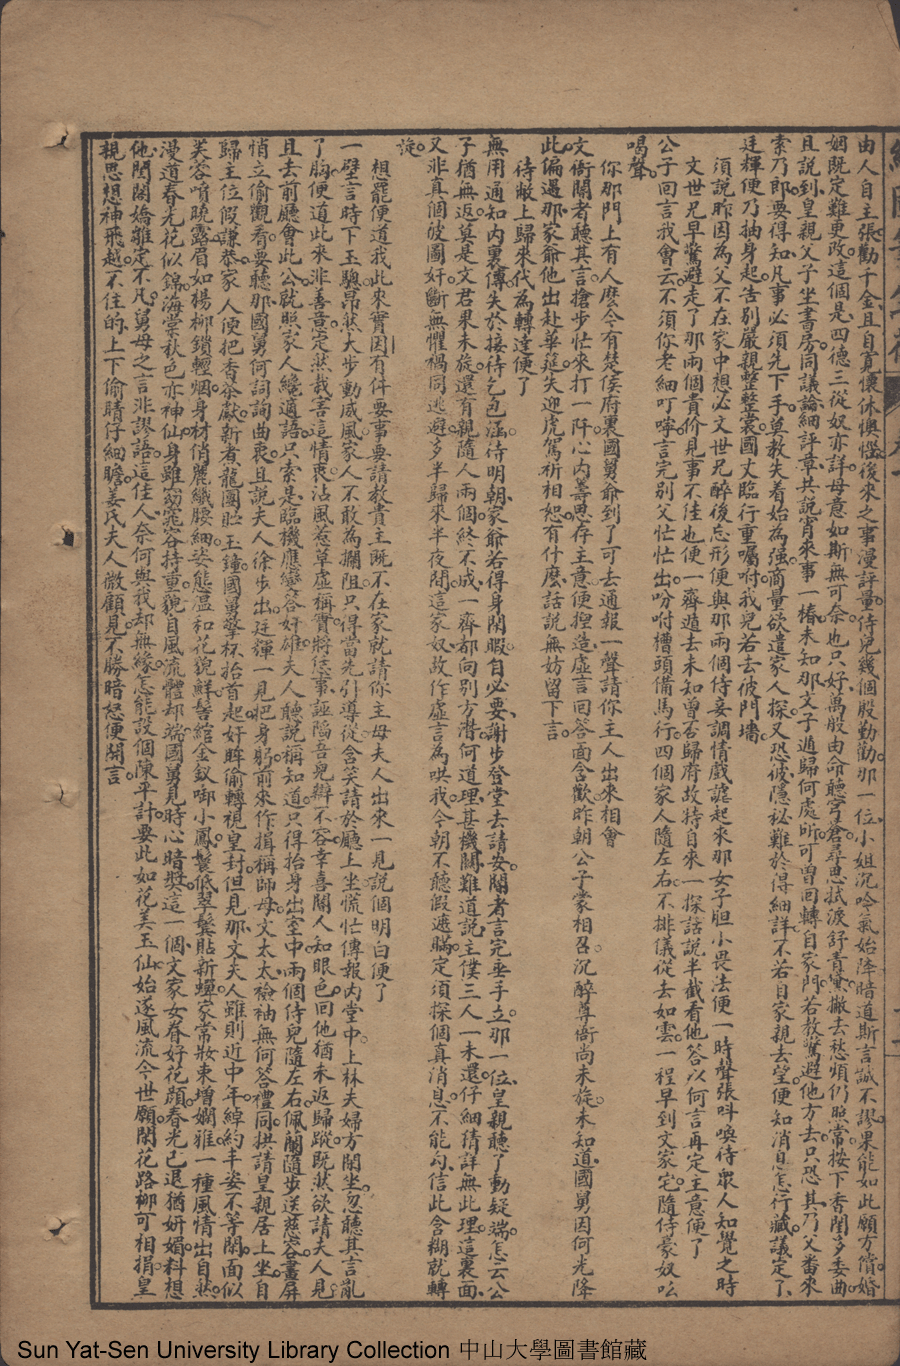 由人自主張勸千金且自寬懷休懊惱後來之事漫評量侍兒幾個殷勤勸那一位小姐沉吟氣始降暗道斯言誠不謬果能如此願方償婚
姻既定難更改這個是四德三從奴亦詳母意如斯無可奈也只好萬般由命聽穹蒼尋思拭淚舒青黛撇去愁煩仍照常按下香閨多委曲
且説到皇親父子坐書房同議論細評章共説宵來事一樁未知那文子遁歸何處所可曾回轉自家門若教驚避他方去只恐其乃父番來
索乃郎要得知凡事必須先下手莫教失着始為强商量欲遣家人探又恐彼隱祕難於得細詳不若自家親去望便知消息怎行藏議定了
廷輝便乃抽身起告別嚴親整整裳國丈臨行重囑咐我兒若去彼門墻
須説昨因為父不在家中想必文世兄醉後忘形便與那兩個侍妾調情戲謔起來那女子胆小畏法便一時聲張呌喚侍眾人知覺之時
文世兄早驚避走了那兩個貴价見事不佳也便一齊遁去未知曾否歸府故特自來一探話説半截看他答以何言再定主意便了
公子回言我會云不須你老細叮嚀言完別父忙忙出吩咐槽頭備馬行四個家人隨左右不排儀從去如雲一程早到文家宅隨侍豪奴吆
喝聲
你那門上有人麽今有楚侯府裏國舅爺到了可去通報一聲請你主人出來相會
文衙閽者聽其言搶步忙來打一阡心内籌思存主意便揑造虚言回答面含歡昨朝公子蒙相召沉醉尊衙尚未旋未知道國舅因何光降
此偏遇那家爺他出赴華筵失迎虎駕祈相恕有什麽話説無妨留下言
待敝上歸來代為轉達便了
無用通知内舅傳失於接待乞包涵侍明朝家爺若得身閑暇自必要謝步登堂去請安閽者言完垂手立那一位皇親聽了動疑端怎云公
子猶無返莫是文君果未旋還有親隨人兩個終不成一齊都向別方潛何道理甚機關難道説主僕三人一未還仔細猜詳無此理這裏面
又非真個彼圖奸斷無懼禍同逃避多半歸來半夜間這家奴故作虚言為哄我今朝不聽假遮瞞定須探個真消息不能勾信此含糊就轉
旋
想罷便道我此來實因有件要事要請教貴主既不在家就請你主母夫人出來一見説個明白便了
一壁言時下玉驄昂然大步動威風家人不敢為攔阻只得當先引導從含笑請於廳上坐慌忙傳報内堂中上林夫婦方閑坐忽聽其言亂
了胸便道此來非善意定然栽害這情衷沾風惹草虚稱實將恁事誣陷吾兒辯不容幸喜閽人知眼色回他猶未返歸蹤既然欲請夫人見
且去前廳會此公就照家人纔適語只索是臨機應變答奸雄夫人聽説稱知道只得抬身出室中兩個侍兒隨左右佩蘭隨步送慈容畫屏
悄立偷觀看要聽那國舅何詞詢曲衷且説夫人徐步出廷輝一見把身躬前來作揖稱師母文太太襝袖無何答禮同拱請皇親居上坐自
歸主位假謙恭家人便把香茶獻新煮龍團貯玉鐘國舅擎杯抬首起奸眸偷轉視皇封但見那文夫人雖則近中年綽約丰姿不等閑面似
芙蓉噴曉露眉如楊柳鎖輕烟身材俏麗纖腰細姿態温和花貌鮮髻綰金釵啣小鳳鬢低翠鬟貼新蟬家常妝束增嫻雅一種風情出自然
漫道春光花似錦海棠秋色亦神仙身雖窈窕容持重貌自風流體却端國舅見時心暗獎這一個文家女眷好花顔春光已退猶妍媚料想
他閨閣嬌雛定不凡舅母之言非謬語這佳人奈何與我却無緣怎能設個陳平計要此如花美玉仙始遂風流今世願閑花路柳可相捐皇
親思想神飛越不住的上下偷睛仔細瞻姜氏夫人微顧見不勝暗怒便開言
Sun Yat-Sen University Library Collection 中山大學圖書館藏